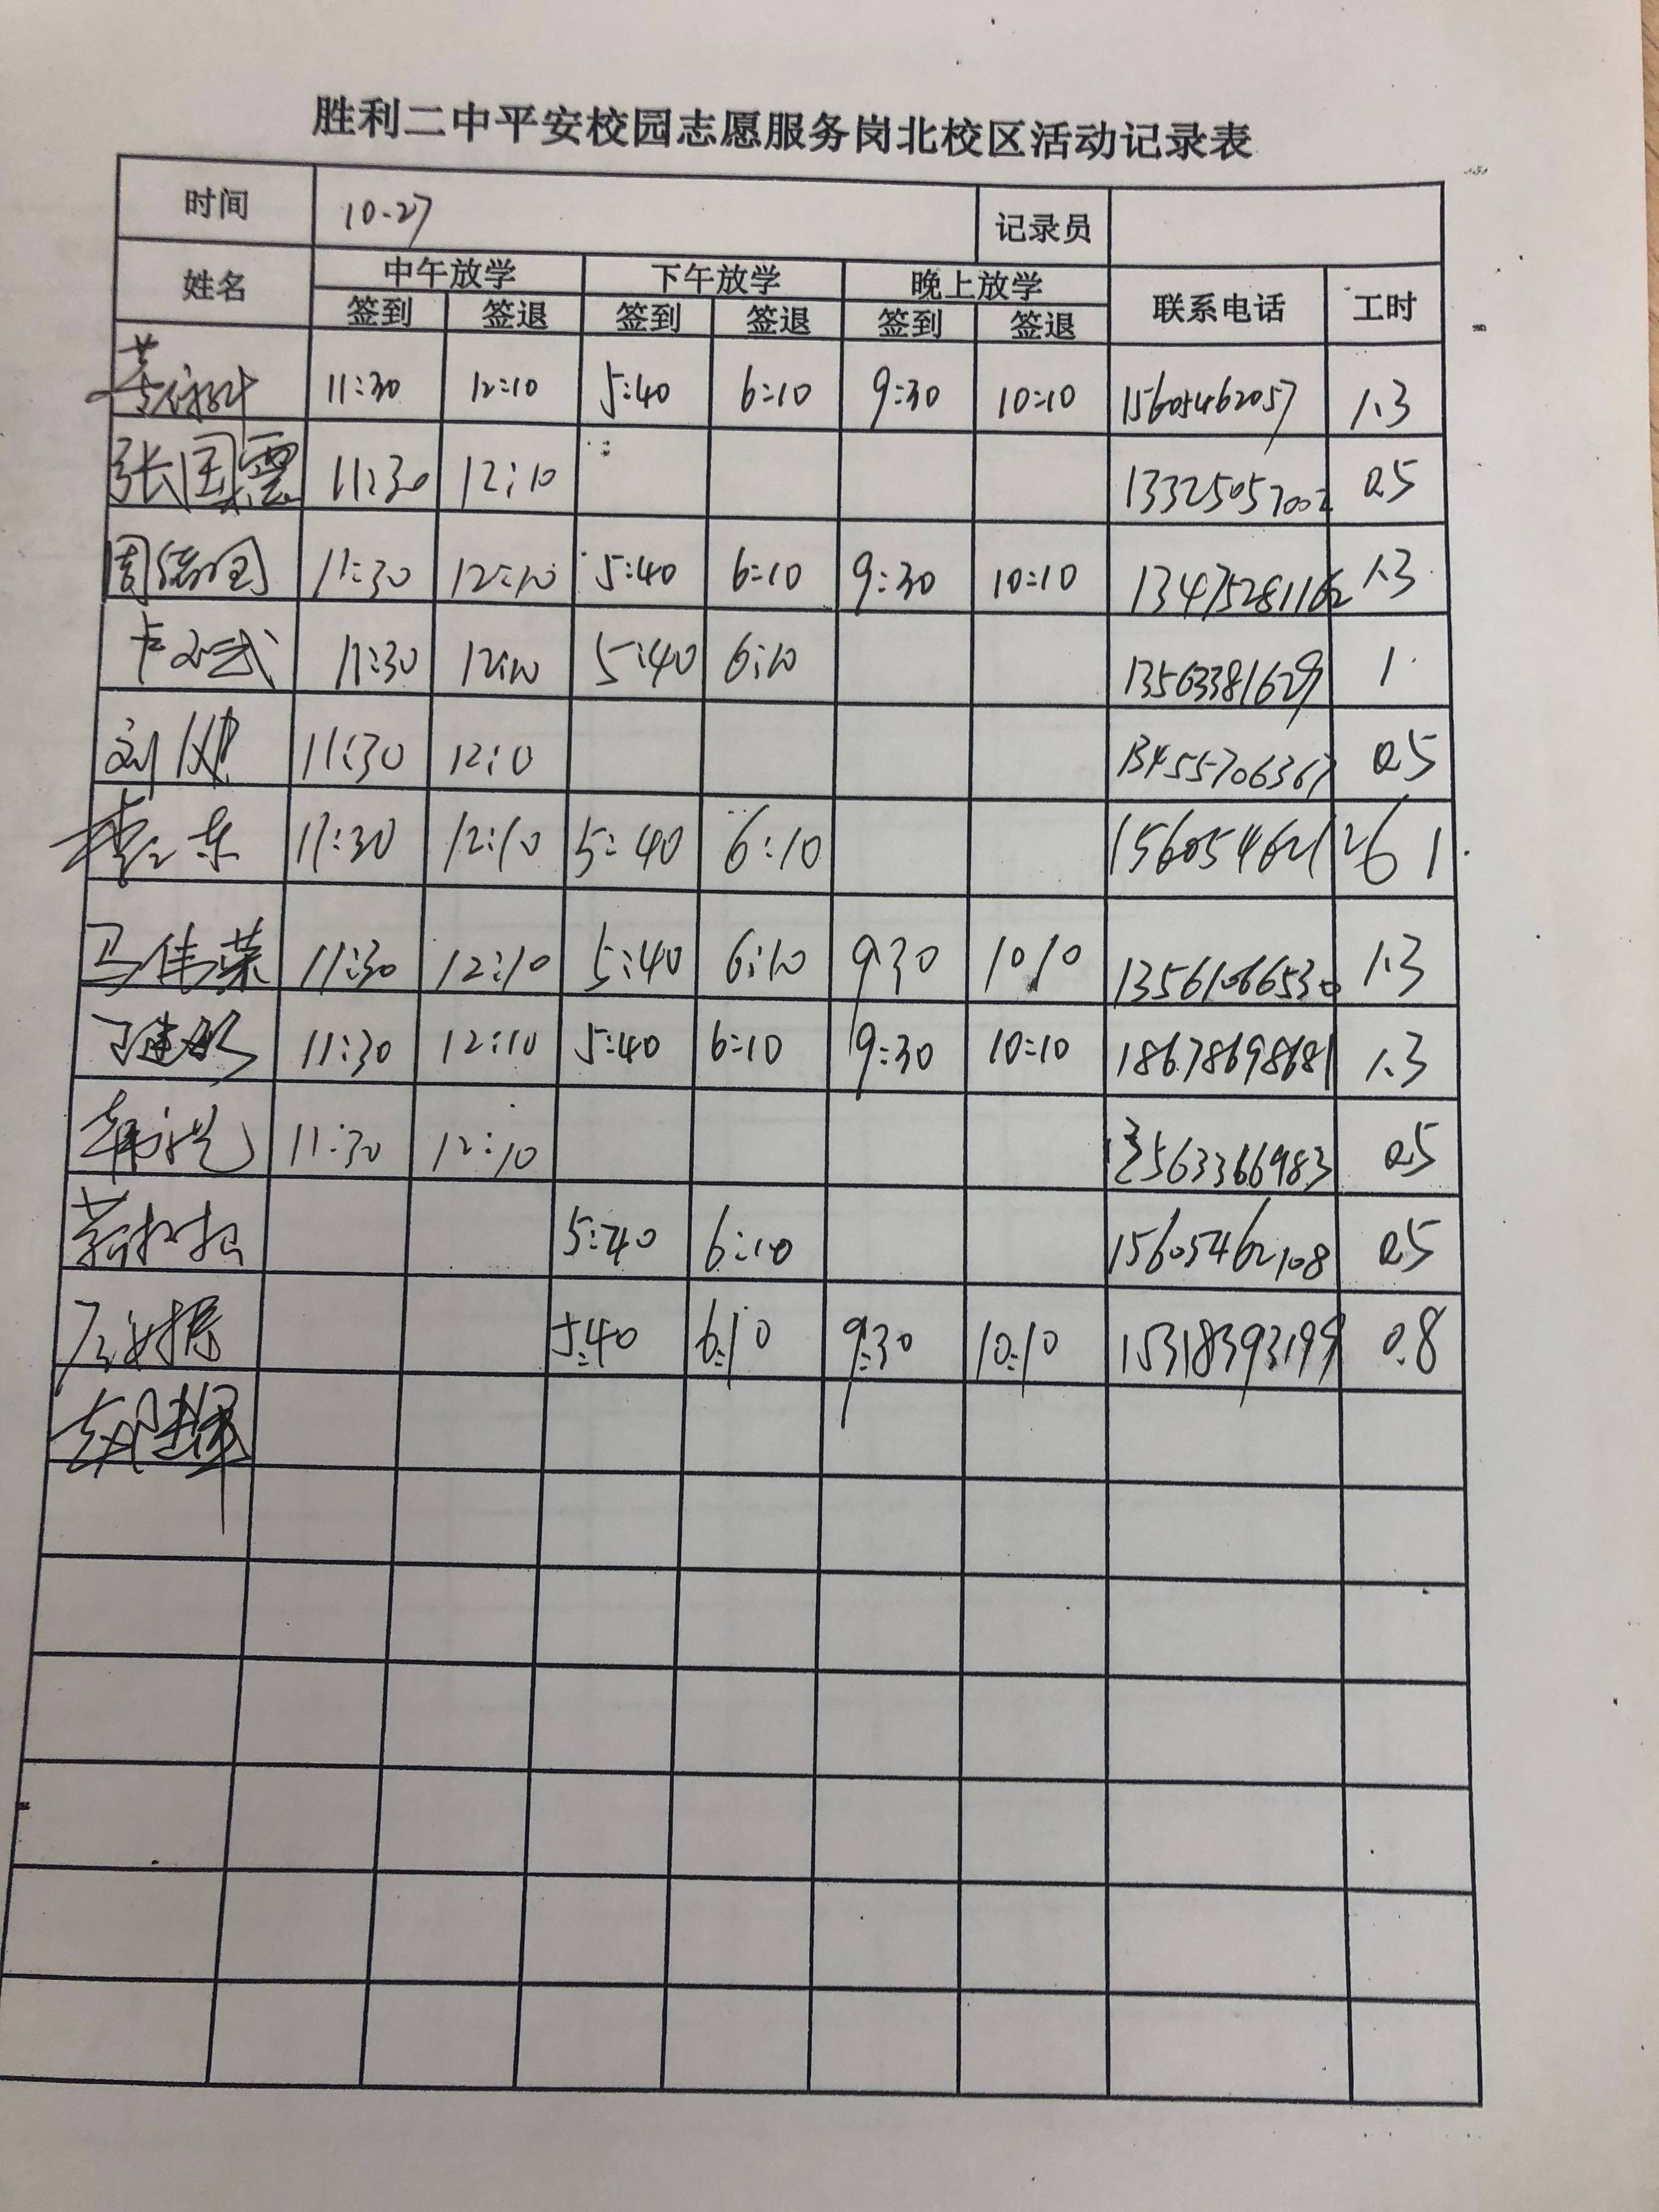 胜利二中平安校园志愿服务岗北校区活动记录表
时间 10.27 记录员
姓名 中午放学 下午放学 晚上放学 联系电话 工时
签到 签退 签到 签退 签到 签退
11:30 12:10 5:40 6:10 9:30 10:10 15605462057 1.3
张国霞 11:30 12:10 13325057002 0.5
11:30 12:10 5:40 6:10 9:30 10:10 13475281162 1.3
11:30 12:10 5:40 6:10 13563381629 1
刘健 11:30 12:10 13455706367 0.5
11:30 12:10 5:40 6:10 15605462126 1
马伟荣 11:30 12:10 5:40 6:10 9:30 10 10 13561066530 1.3
11:30 12:10 5:40 6:10 9:30 10:10 18678698681 1.3
11:30 12:10 13563366983 0.5
5:40 6:10 15605462108 0.5
5:40 6:10 9:30 10:10 15318393199 0.8